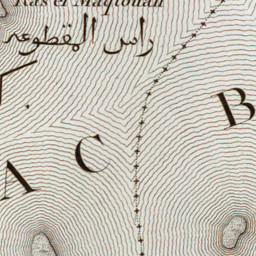 Ras el Maqtouah
راس المقطوعه
B
A C